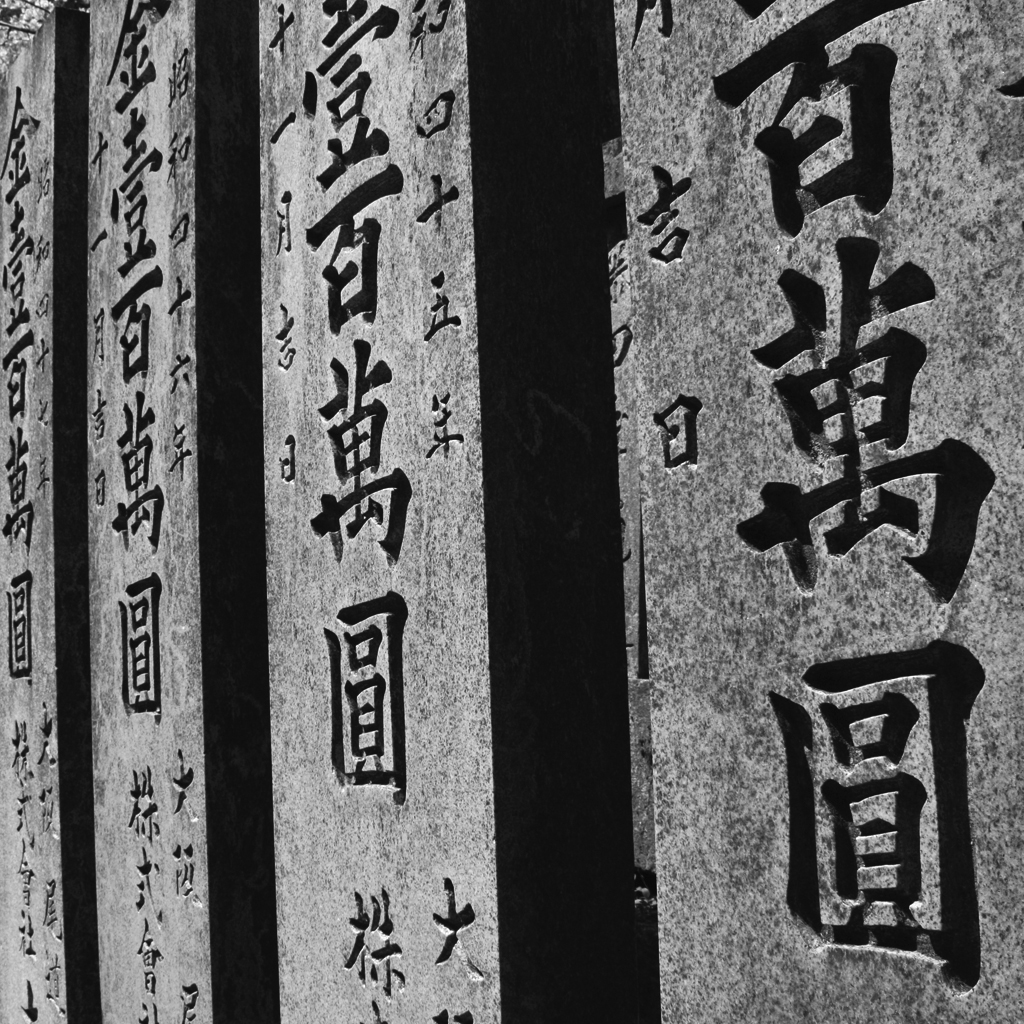 百萬圓
吉日
和四十五年
壹百萬圓
十一月吉日
大
株
昭和四十六年
金壹百萬圓
十一月吉日
大阪
株式會社
昭和四十七年
金壹百萬圓
大阪 尾道
株式會社